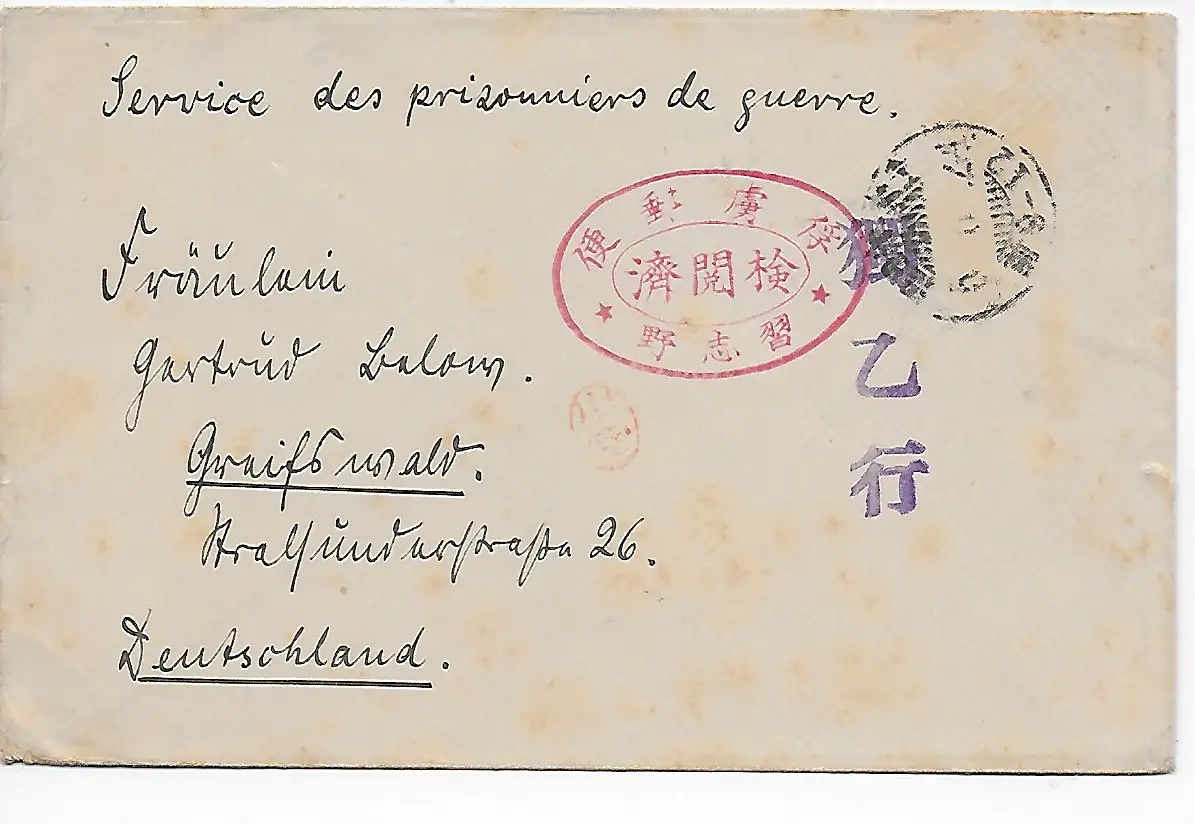 Service des prisonniers de guerre.
俘虜郵便
検閲濟
習志野
獨乙行
Fräulein
Gertrud Below.
Greifswald.
Stralsunderstraße 26.
Deutschland.